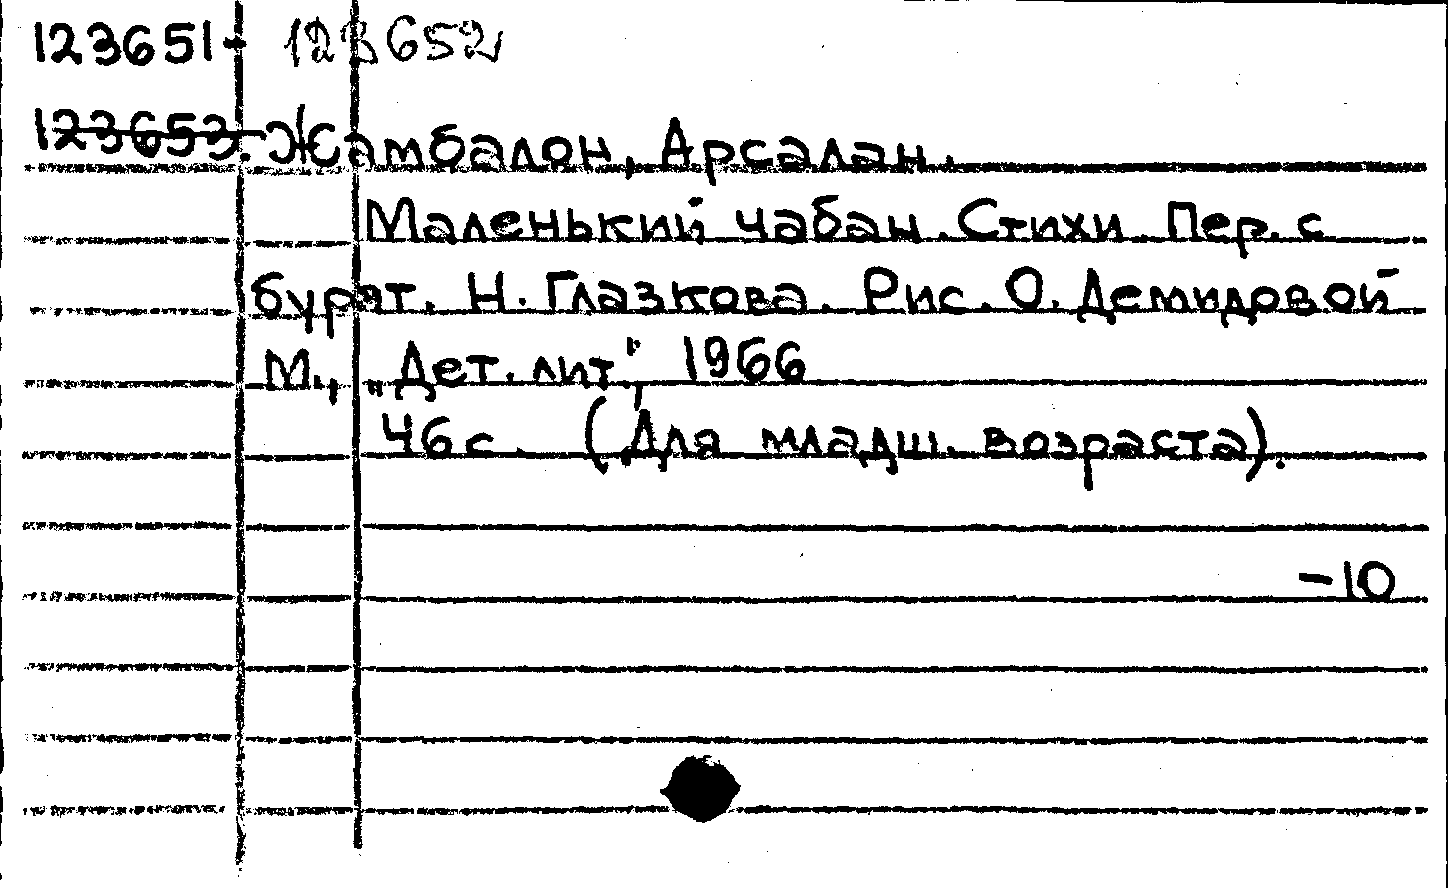 123651- 123652
123653. Жамбалон, Арсалан.
Маленький чабан. Стихи. Пер. с
бурят. Н. Глазкова. Рис. О. Демидовой
М., „Дет. лит.", 1966
46 с. (Для младш. возраста).
-10